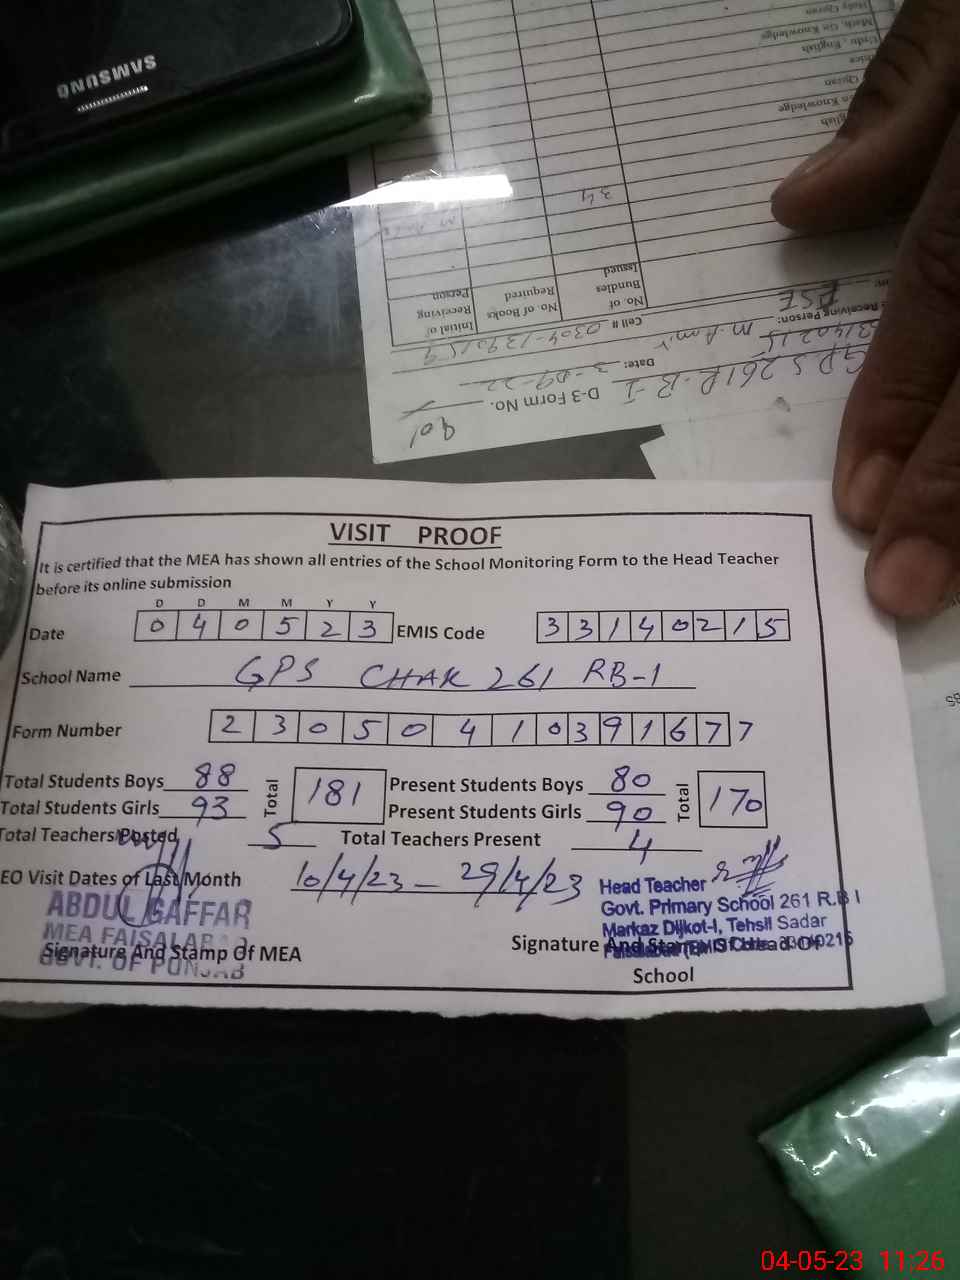 SAMSUNG
Holy Quran
Math, Gn Knowledge
Urdu, English
Quran
Knowledge
34
Initial of Receiving Person
No. of Books Required
No. of Bundles Issued
Cell #
Receiving Person:
Date: 3-09-22
GPS 261 R-B-I
D-3 Form No.
901
VISIT PROOF
It is certified that the MEA has shown all entries of the School Monitoring Form to the Head Teacher
before its online submission
D D M M Y Y
Date 0 4 0 5 2 3 EMIS Code 3 3 1 4 0 2 1 5
School Name GPS CHAK 261 RB-1
Form Number 2 3 0 5 0 4 1 0 3 9 1 6 7 7
Total Students Boys 88 Total 181 Present Students Boys 80 Total 170
Total Students Girls 93 Present Students Girls 90
Total Teachers Posted 5 Total Teachers Present 4
EO Visit Dates of Last Month 10/4/23 - 29/4/23
Head Teacher
Govt. Primary School 261 R.B I
Markaz Dijkot-I, Tehsil Sadar
ABDUL GAFFAR
MEA FAISALABAD
GOVT. OF PUNJAB
Signature And Stamp Of MEA
Signature And Stamp Of Head Of
School
04-05-23 11:26